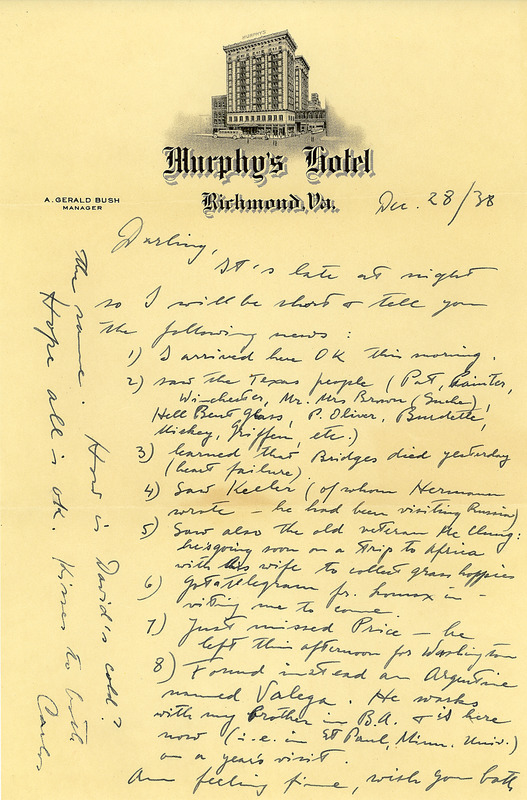 MURPHY'S
Murphy's Hotel
Richmond, Va.
A. GERALD BUSH
MANAGER
Dec. 28/38
Darling,
It's late at night
so I will be short & tell you
the following news :
1) I arrived here OK this morning.
2) saw the Texas people (Pat, Painter,
Winchester, Mr. Mrs Brown (),
Hell Bent Glass, P. Oliver, Burdette,
Mickey, Griffen, etc.)
3) learned that Bridges died yesterday
(heart failure)
4) Saw Keeler (of whom Hermann
wrote – he had been visiting Russia)
5) Saw also the old veteran Mc Clung:
he's going soon on a trip to Africa
with his wife to collect grass hoppers
6) Got a telegram fr. in-
viting me to come.
7) Just missed Price – he
left this afternoon for Washington
8) Found instead an Argentine
named Valega. He works
with my brother in B.A. & is here
now (i.e. in St Paul, Minn. Univ.)
on a year's visit.
Am feeling fine, wish you both
the same. How is David's cold?
Hope all is OK. Kisses to both
Carlos